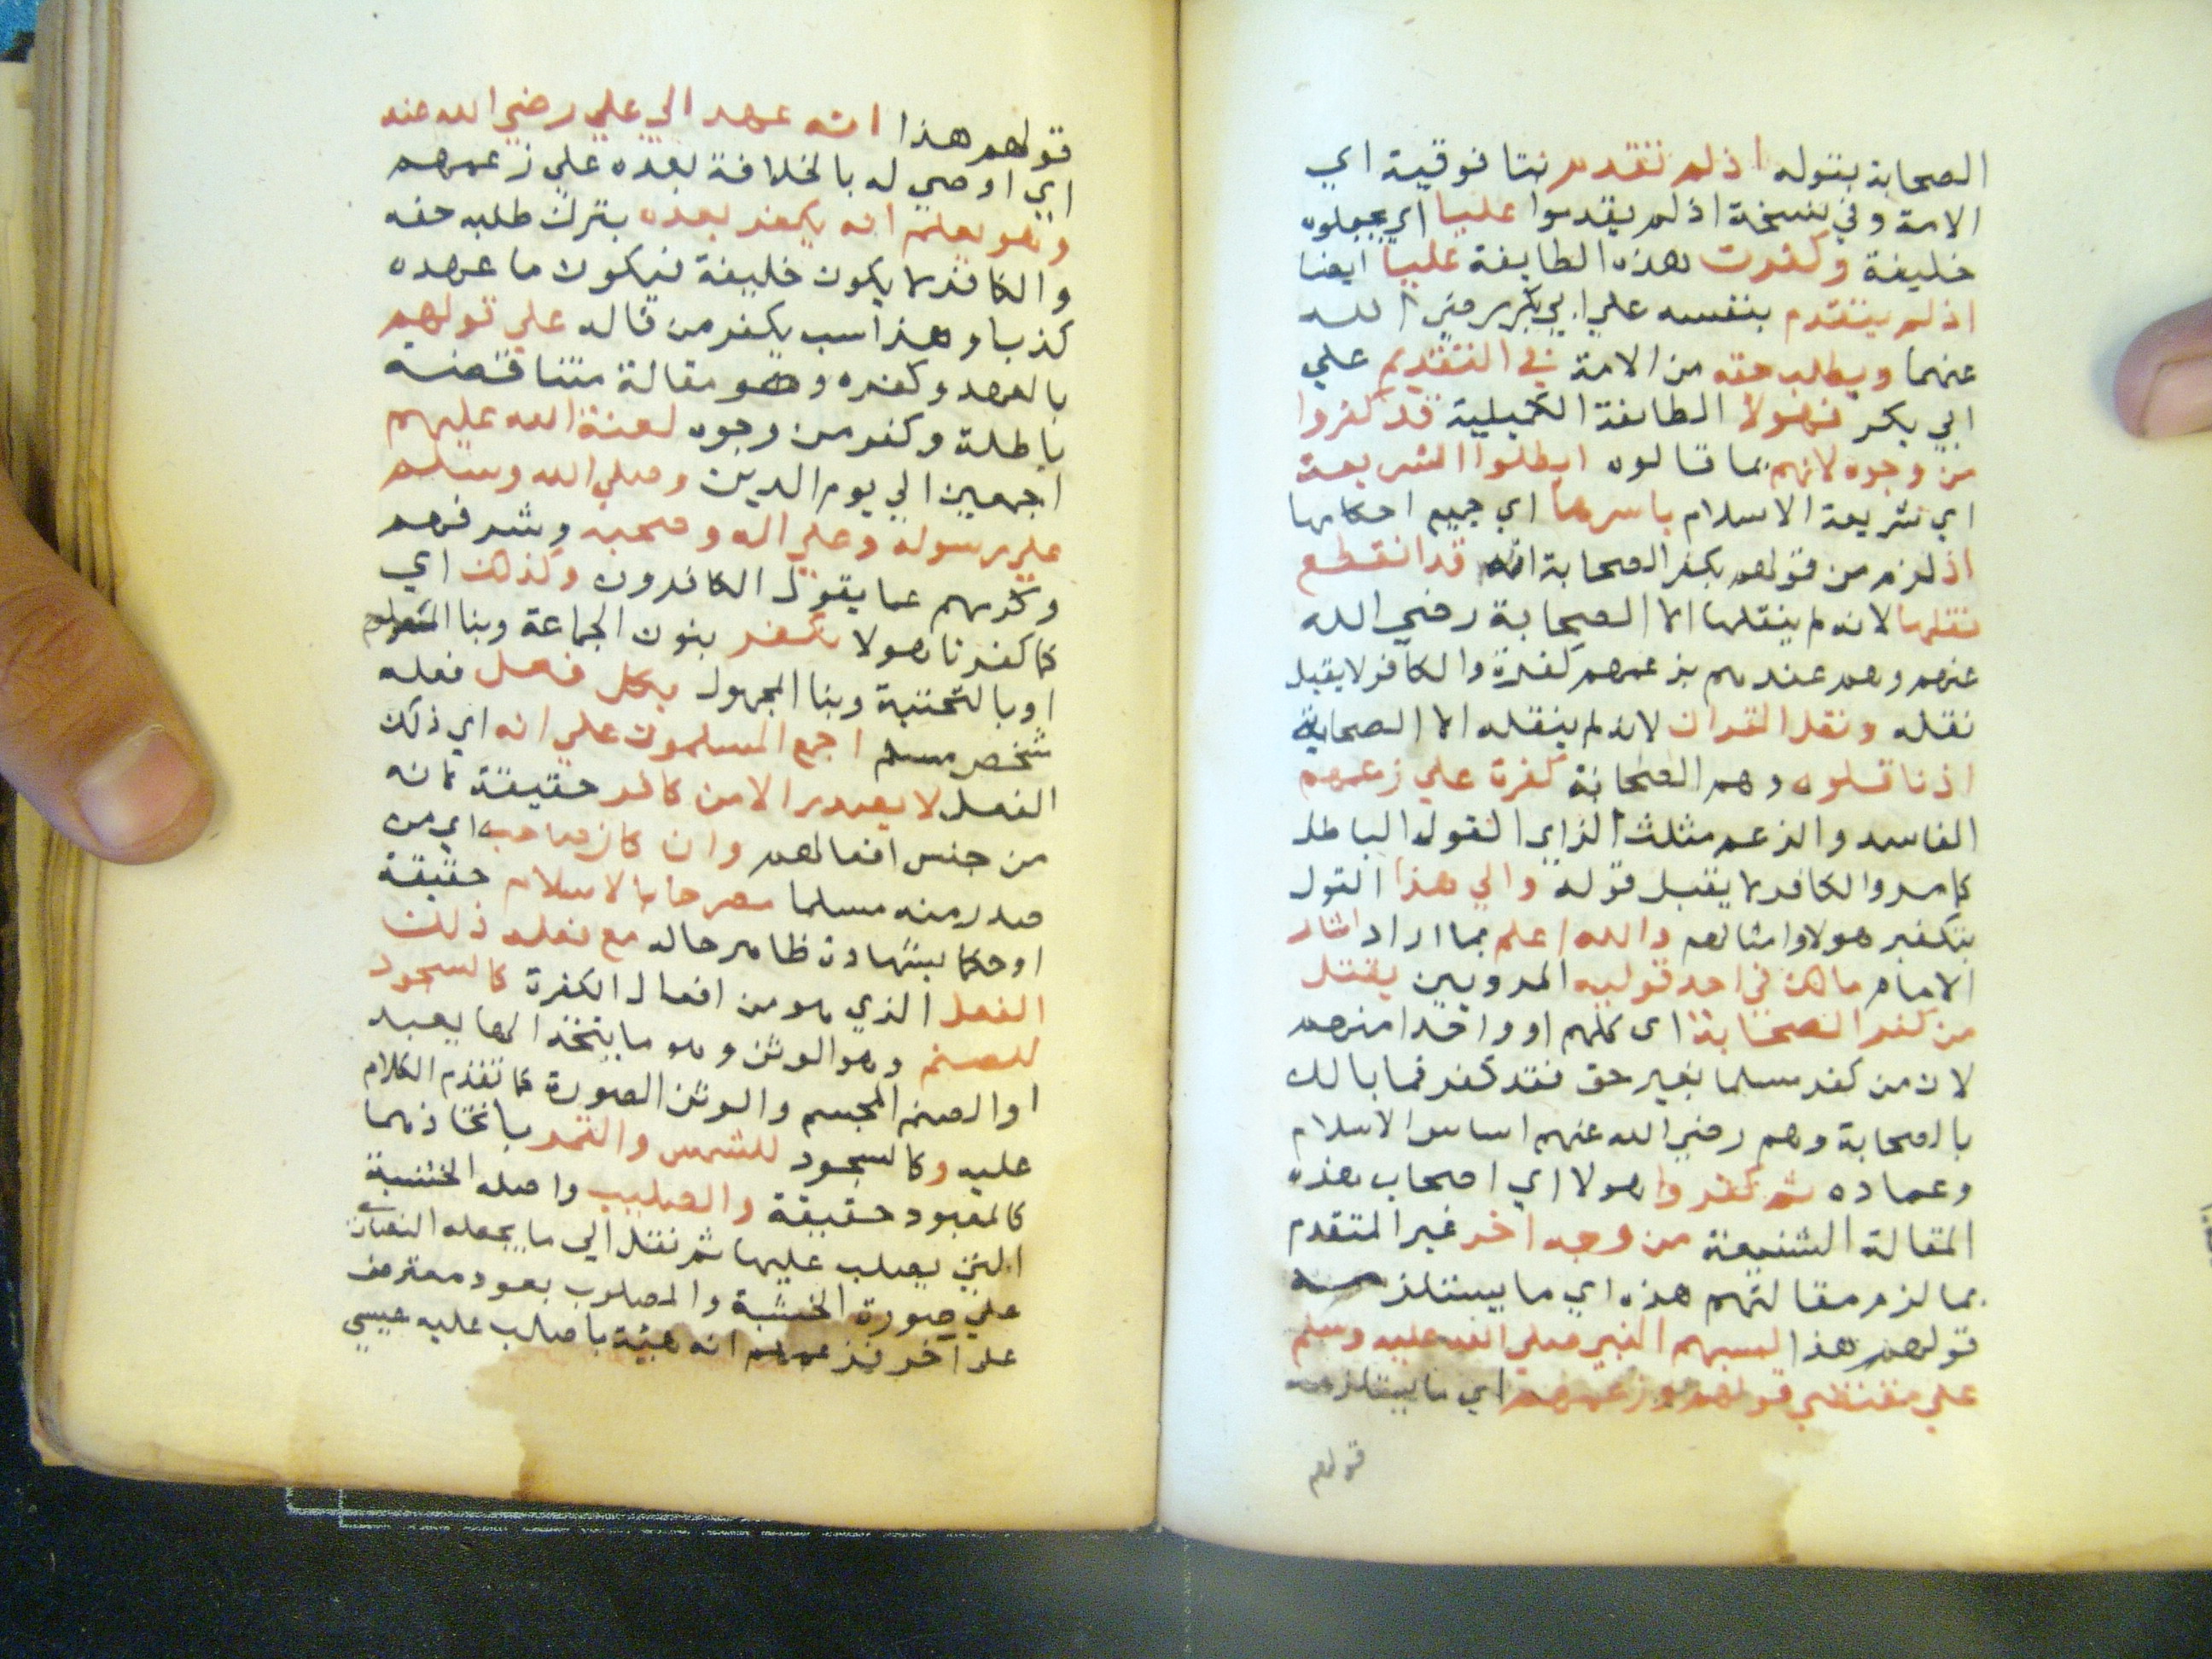 الصحابة بقوله اذ لم تقدم بتا فوقية اي
الامة وفي نسخة اذ لم يقدموا عليا اي يجعلوه
خليفة وكفرت هذه الطايفة عليا ايضا
اذ لم يتقدم بنفسه علي ابي بكر رضي الله
عنهما ويطلب حقه من الامة في التقديم علي
ابي بكر فهولا الطائفة الكميلية قد كفروا
من وجوه لانهم بما قالوه ابطلوا الشريعة
اي شريعة الاسلام باسرها اي جميع احكامها
اذ لزم من قولهم بكفر الصحابة انه قد انقطع
نقلها لانه لم ينقلها الا الصحابة رضي الله
عنهم وهم عندهم بزعمهم كفرة والكافر لا يقبل
نقله ونقل القران لانه لم ينقله الا الصحابة
اذ ناقلوه وهم الصحابة كفرة علي زعمهم
الفاسد والزعم مثلث الزاي القول الباطل
كامر والكافر لا يقبل قوله والي هذا القول
بتكفير هولا وامثالهم والله اعلم بما اراد اشار
الامام مالك في احد قوليه المرويين بقتل
من كفر الصحابة اي كلهم او واحدا منهم
لان من كفر مسلما بغير حق فقد كفر فما بالك
بالصحابة وهم رضي الله عنهم اساس الاسلام
وعماده ثم كفروا هولا اي اصحاب هذه
المقالة الشنيعة من وجه اخر غير المتقدم
بما لزم مقالتهم هذه اي ما يستلزمه
قولهم هذا لسبهم النبي صلي الله عليه وسلم
علي مقتضي قولهم وزعمهم اي ما يستلزمه
قولهم
قولهم هذا انه عهد الي علي رضي الله عنه
اي اوصي له بالخلافة بعده علي زعمهم
وهو يعلم انه يكفر بعده بترك طلبه حقه
والكافر لا يكون خليفة فيكون ما عهده
كذبا وهذا سب يكفر من قاله علي قولهم
بالعهد وكفره وهو مقالة متناقضة
باطلة وكفر من وجوه لعنة الله عليهم
اجمعين الي يوم الدين وصلي الله وسلم
علي رسوله وعلي اله وصحبه وشرفهم
وكرمهم عما يقول الكافرون وكذلك اي
كما كفرنا هولا نكفر بنون الجماعة وبنا
او بالتحتية وبنا المجهول بكل فعل فعله
شخص مسلم اجمع المسلمون علي انه اي ذلك
الفعل لا يصدر الا من كافر حقيقة لانه
من جنس افعالهم وان كان صاحبه اي من
صدر منه مسلما مصرحا بالاسلام حقيقة
او حكما بشهادة ظاهر حاله مع فعله ذلك
الفعل الذي هو من افعال الكفرة كالسجود
للصنم وهو الوثن وهو ما يتخذ الها يعبد
او الصنم المجسم والوثن الصورة كما تقدم الكلام
عليه وكالسجود للشمس والقمر باتخاذهما
كالمعبود حقيقة والصليب واصله الخشبة
التي يصلب عليها ثم نقل الي ما يجعله النصاري
علي صورة الخشبة والمصلوب بعود معترض
علي اخر فزعمهم انه هيئة ما صلب عليه عيسي